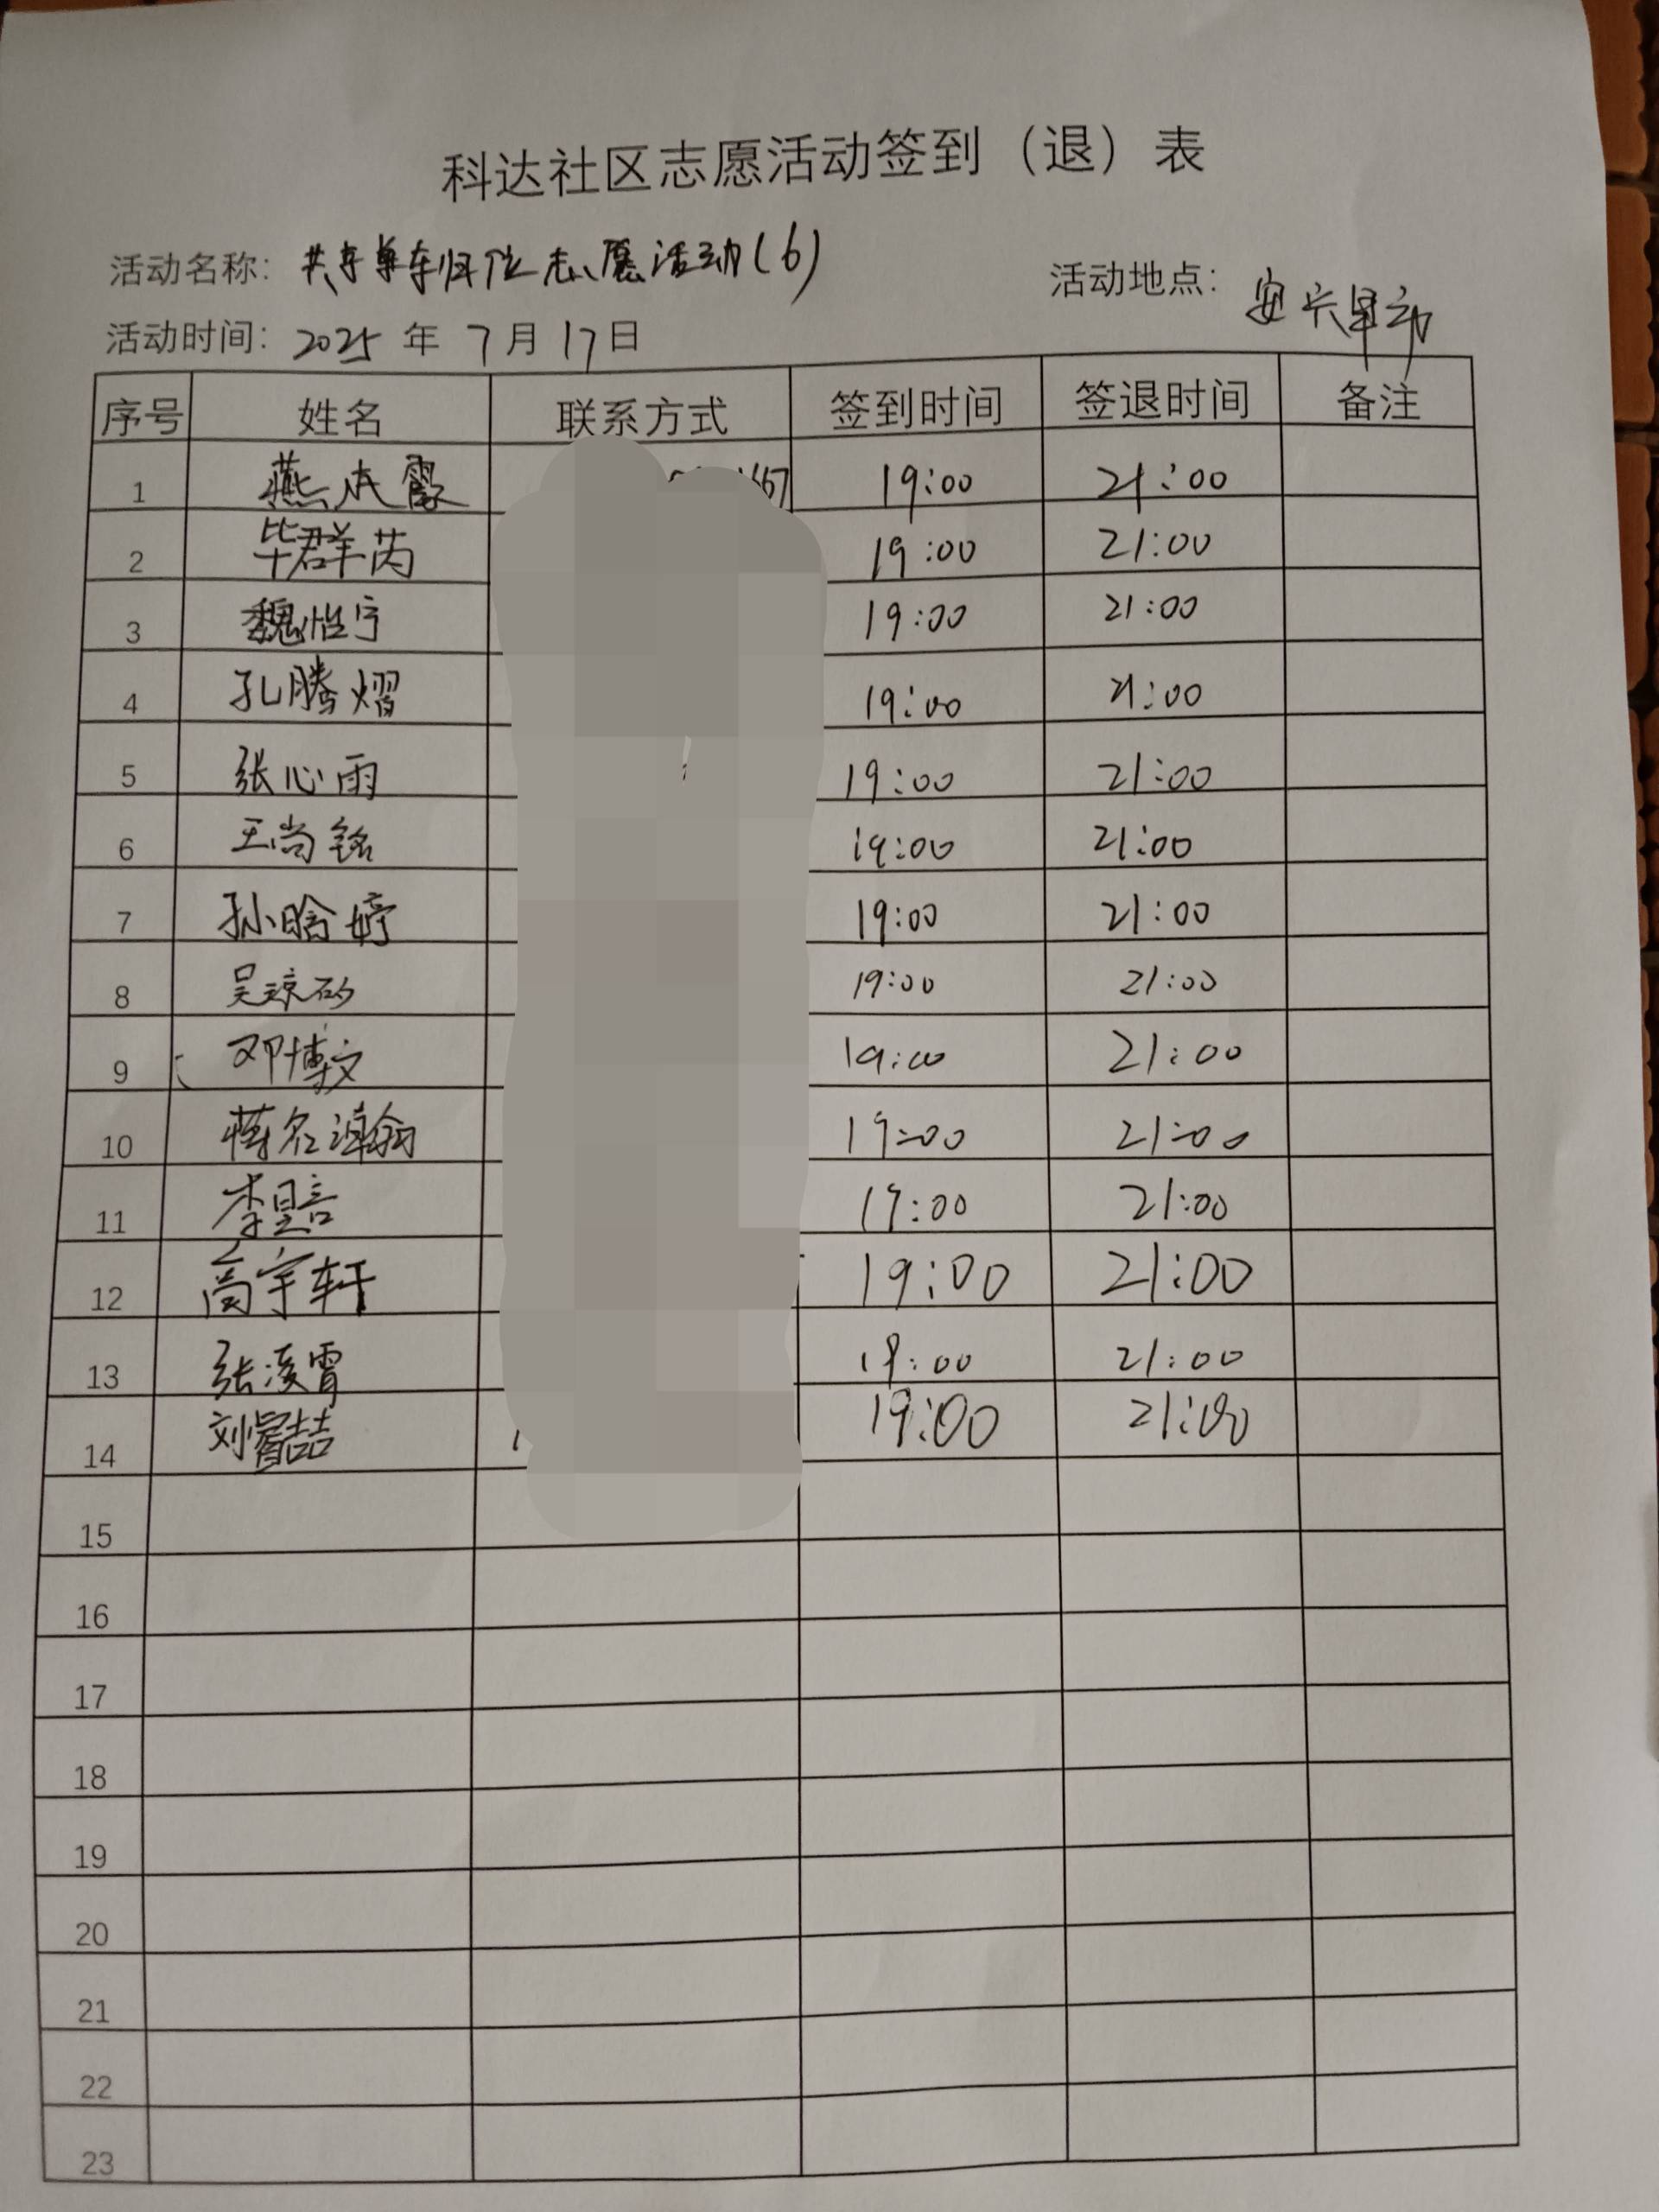 科达社区志愿活动签到（退）表
活动名称：共享单车归位志愿活动(6) 活动地点：安兴早市
活动时间：2025年7月17日
序号 姓名 联系方式 签到时间 签退时间 备注
1 燕 霞 67 19:00 21:00
2 毕群芮 19:00 21:00
3 魏 宁 19:00 21:00
4 孔腾熠 19:00 21:00
5 张心雨 19:00 21:00
6 王尚铭 19:00 21:00
7 孙晗婷 19:00 21:00
8 吴琼 19:00 21:00
9 邓博文 19:00 21:00
10 蒋名瀚 19:00 21:00
11 李昱言 19:00 21:00
12 高宇轩 19:00 21:00
13 张凌霄 19:00 21:00
14 刘睿喆 19:00 21:00
15
16
17
18
19
20
21
22
23